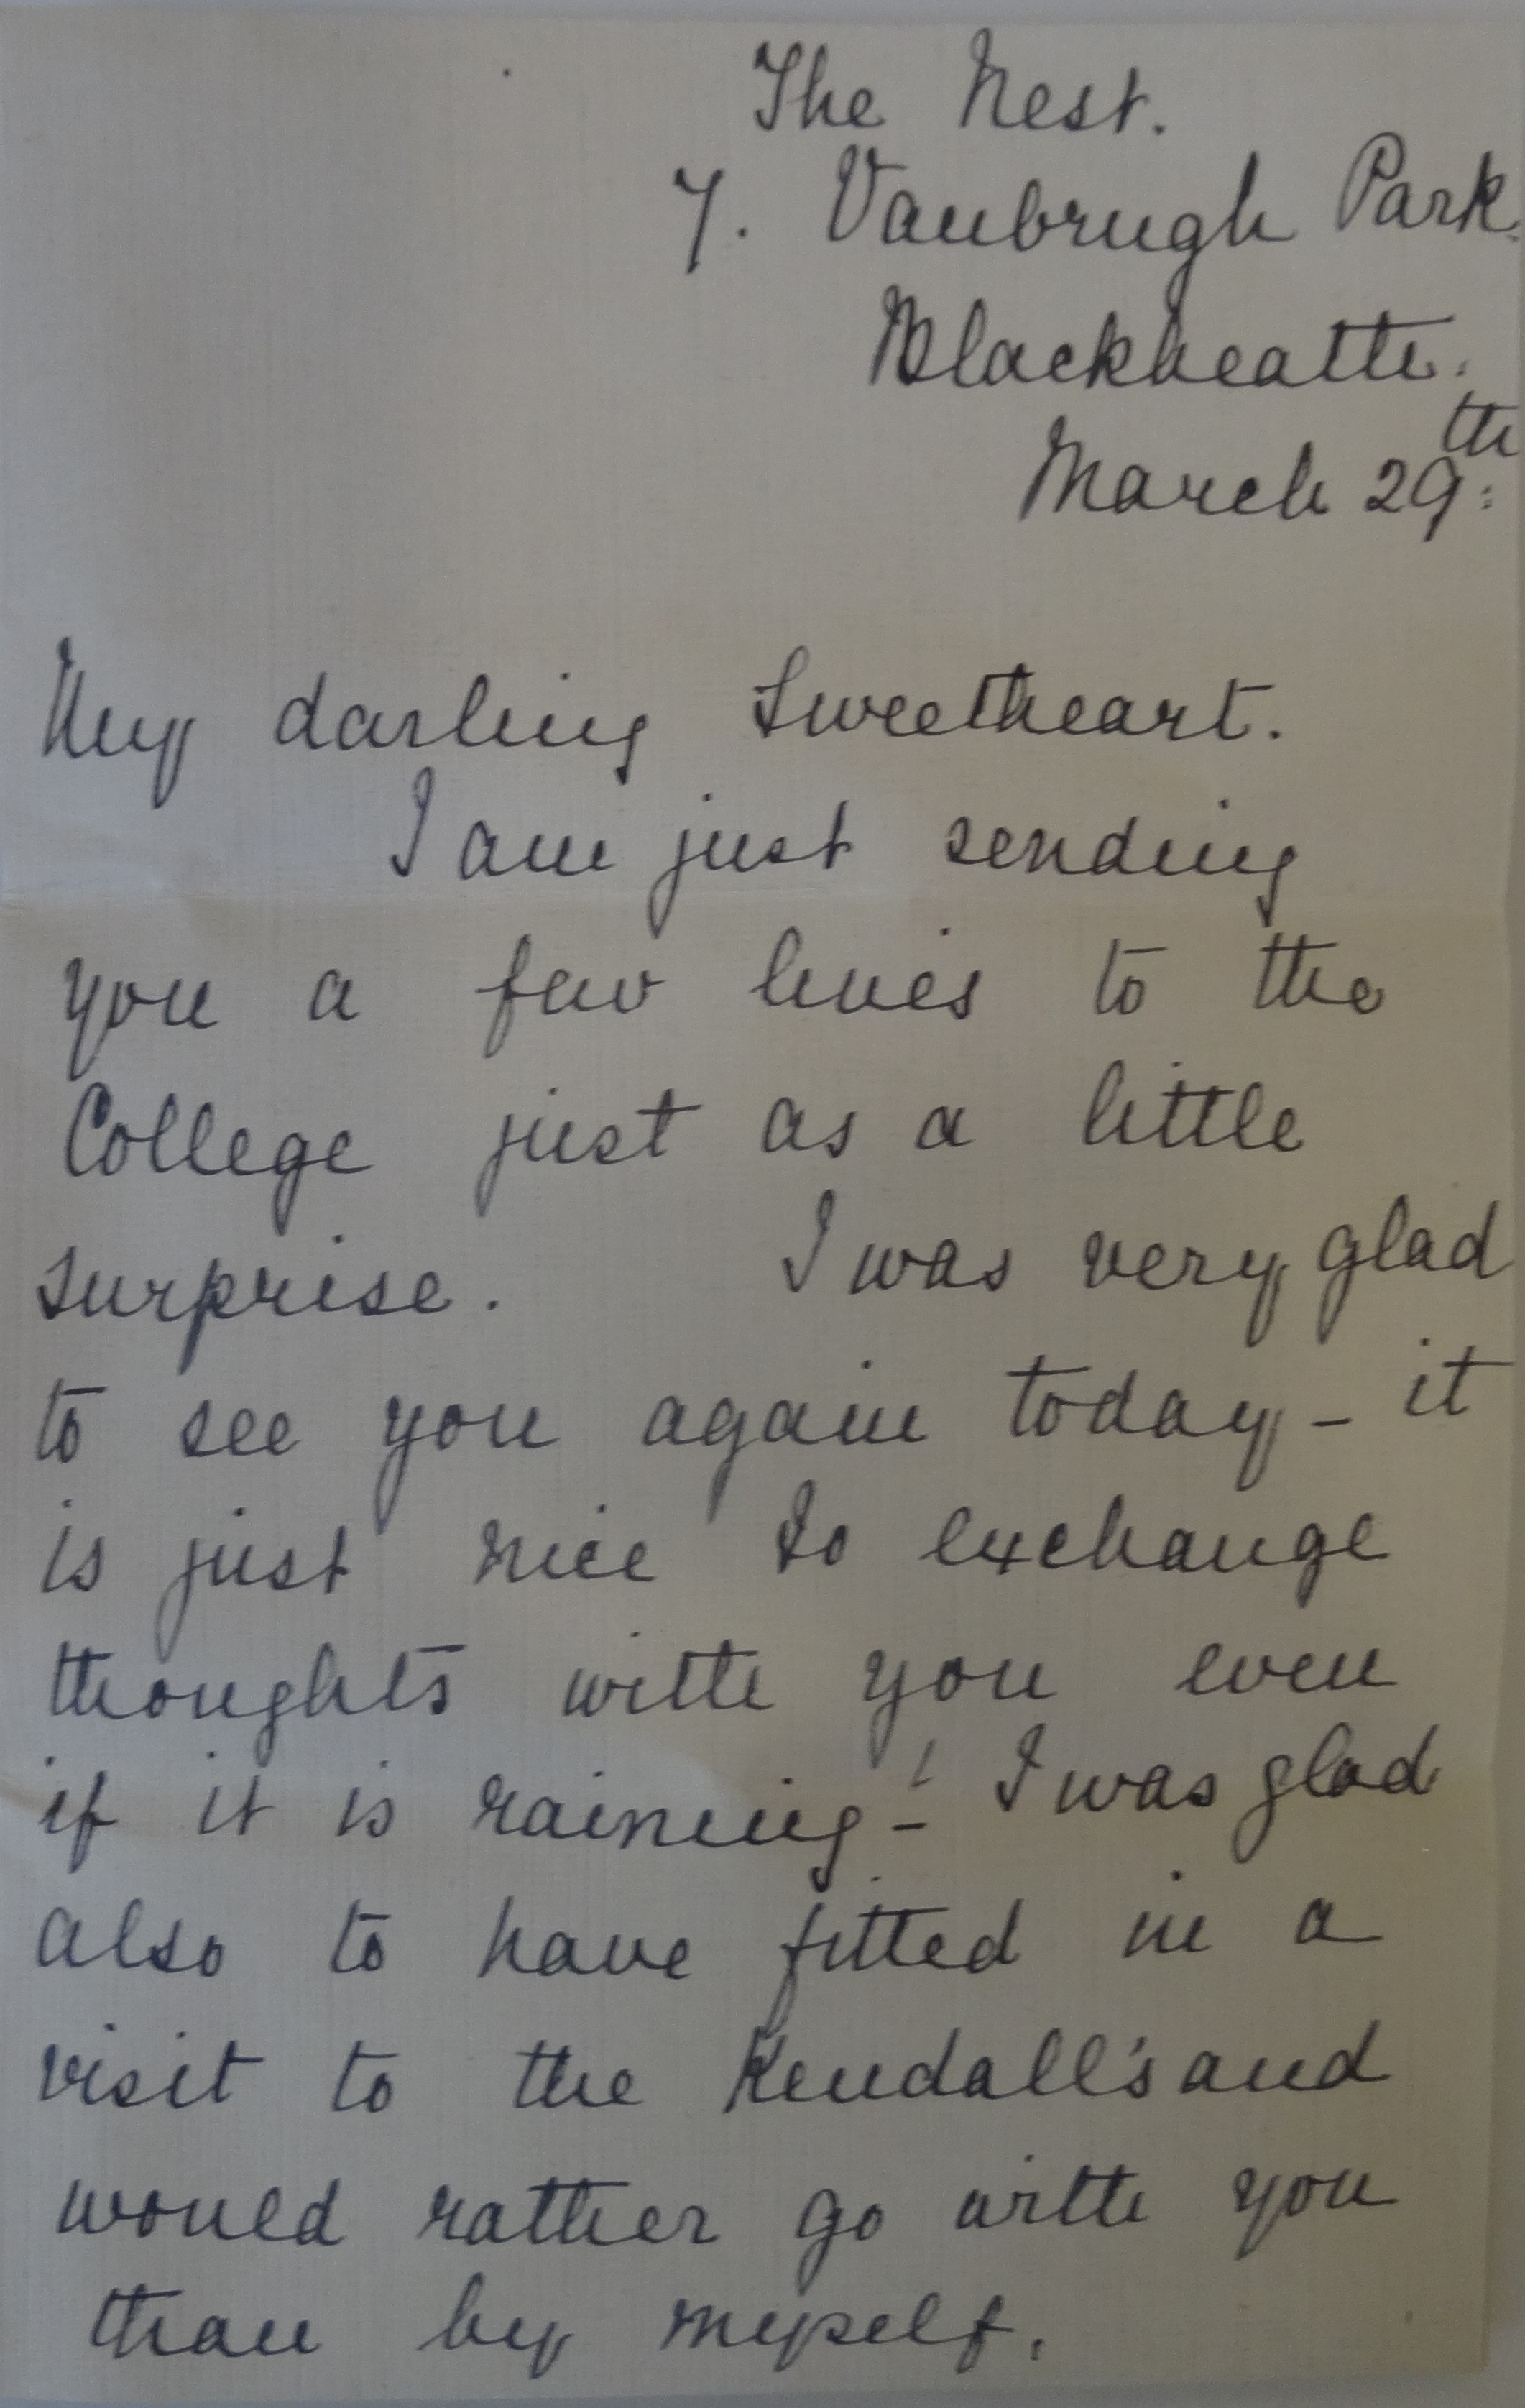 The Nest.
7. Vanbrugh Park.
Blackheath.
March 29th:
My darling Sweetheart.
I am just sending
you a few lines to the
College just as a little
surprise. I was very glad
to see you again today - it
is just nice to exchange
thoughts with you even
if it is raining - ! I was glad
also to have fitted in a
visit to the Kendall's and
would rather go with you
than by myself.